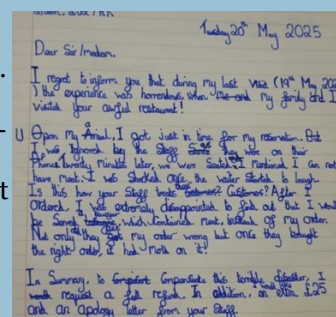 Tuesday 20th May 2025
Dear Sir/madam,
I regret to inform you that during my last visit (19th May 202
) the experience was horrendous when me and my family and I
visited your awful restaurant!
U Upon my Arival, I got just in time for my reservation. But
I was Ignored by the Staff they were on their
Phones. Twenty Minutes later, we were Seated. I mentioned I can not
have meat. I was Shocked once the waiter Started to laugh.
Is this how your Staff treats Customers? After I
Ordered, I was extremely disappointed to find out that I would
be Served which Contained meat, instead of my order.
Not only they got my order wrong but once they brought
the right order, it had Moth on it!
In Summary, to Compensate this terrible disaster, I
request a full refund. In addition, an extra £25
and an apology letter from your Staff.